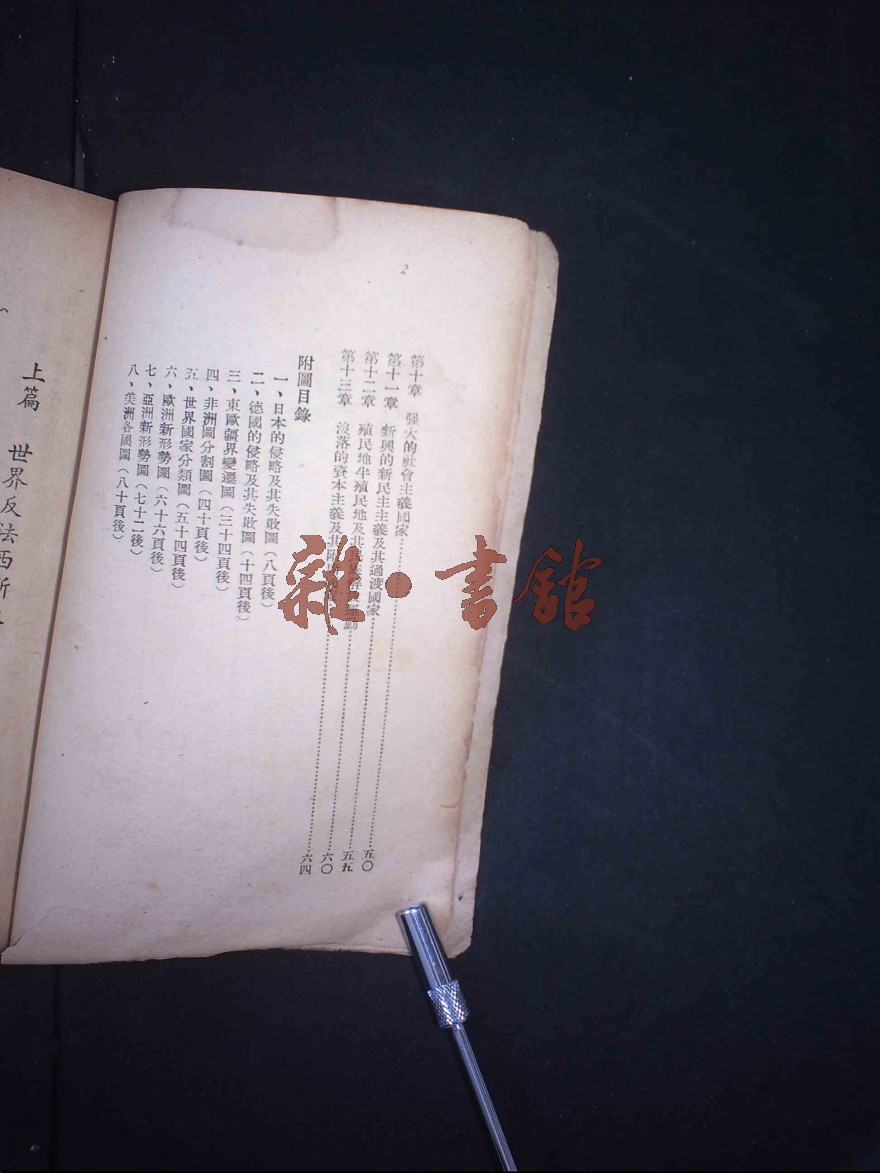 2
第十章 强大的社會主義國家……五〇
第十一章 新興的新民主主義及其過渡國家……五五
第十二章 殖民地半殖民地及其民族解放運動……六〇
第十三章 沒落的資本主義及其附……六四
附圖目錄
一、日本的侵略及其失敗圖(八頁後)
二、德國的侵略及其失敗圖(十四頁後)
三、東歐疆界變遷圖(三十四頁後)
四、非洲圖分割圖(四十頁後)
五、世界國家分類圖(五十四頁後)
六、歐洲新形勢圖(六十六頁後)
七、亞洲新形勢圖(七十二後)
八、美洲各國圖(八十頁後)
上篇 世界反法西斯
雜·書館